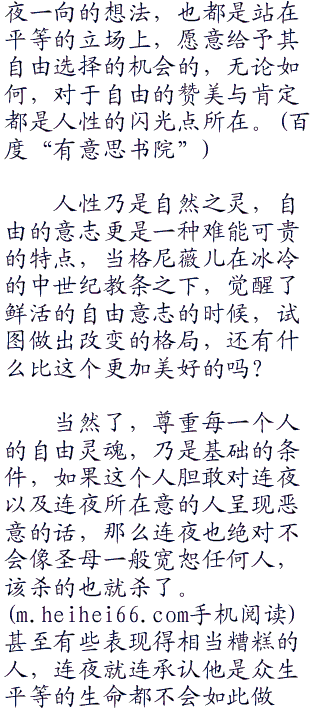 夜一向的想法，也都是站在
平等的立场上，愿意给予其
自由选择的机会的，无论如
何，对于自由的赞美与肯定
都是人性的闪光点所在。(百
度“有意思书院”)
人性乃是自然之灵，自
由的意志更是一种难能可贵
的特点，当格尼薇儿在冰冷
的中世纪教条之下，觉醒了
鲜活的自由意志的时候，试
图做出改变的格局，还有什
么比这个更加美好的吗？
当然了，尊重每一个人
的自由灵魂，乃是基础的条
件，如果这个人胆敢对连夜
以及连夜所在意的人呈现恶
意的话，那么连夜也绝对不
会像圣母一般宽恕任何人，
该杀的也就杀了。
(m.heihei66.com手机阅读)
甚至有些表现得相当糟糕的
人，连夜就连承认他是众生
平等的生命都不会如此做